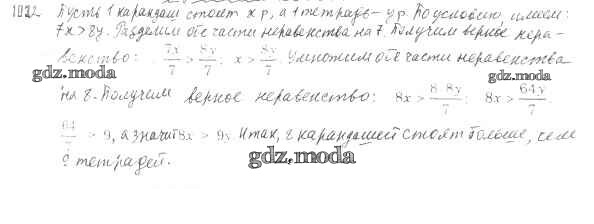 1032. Пусть 1 карандаш стоит x р, а 1 тетрадь – y р. По условию, имеем:
7x > 8y. Разделим обе части неравенства на 7. Получим верное нера-
венство: 7x/7 > 8y/7; x > 8y/7. Умножим обе части неравенства
gdz.moda gdz.moda
на 8. Получим верное неравенство: 8x > 8·8y/7; 8x > 64y/7.
64/7 > 9, а значит 8x > 9y. Итак, 8 карандашей стоят больше, чем
9 тетрадей.
gdz.moda